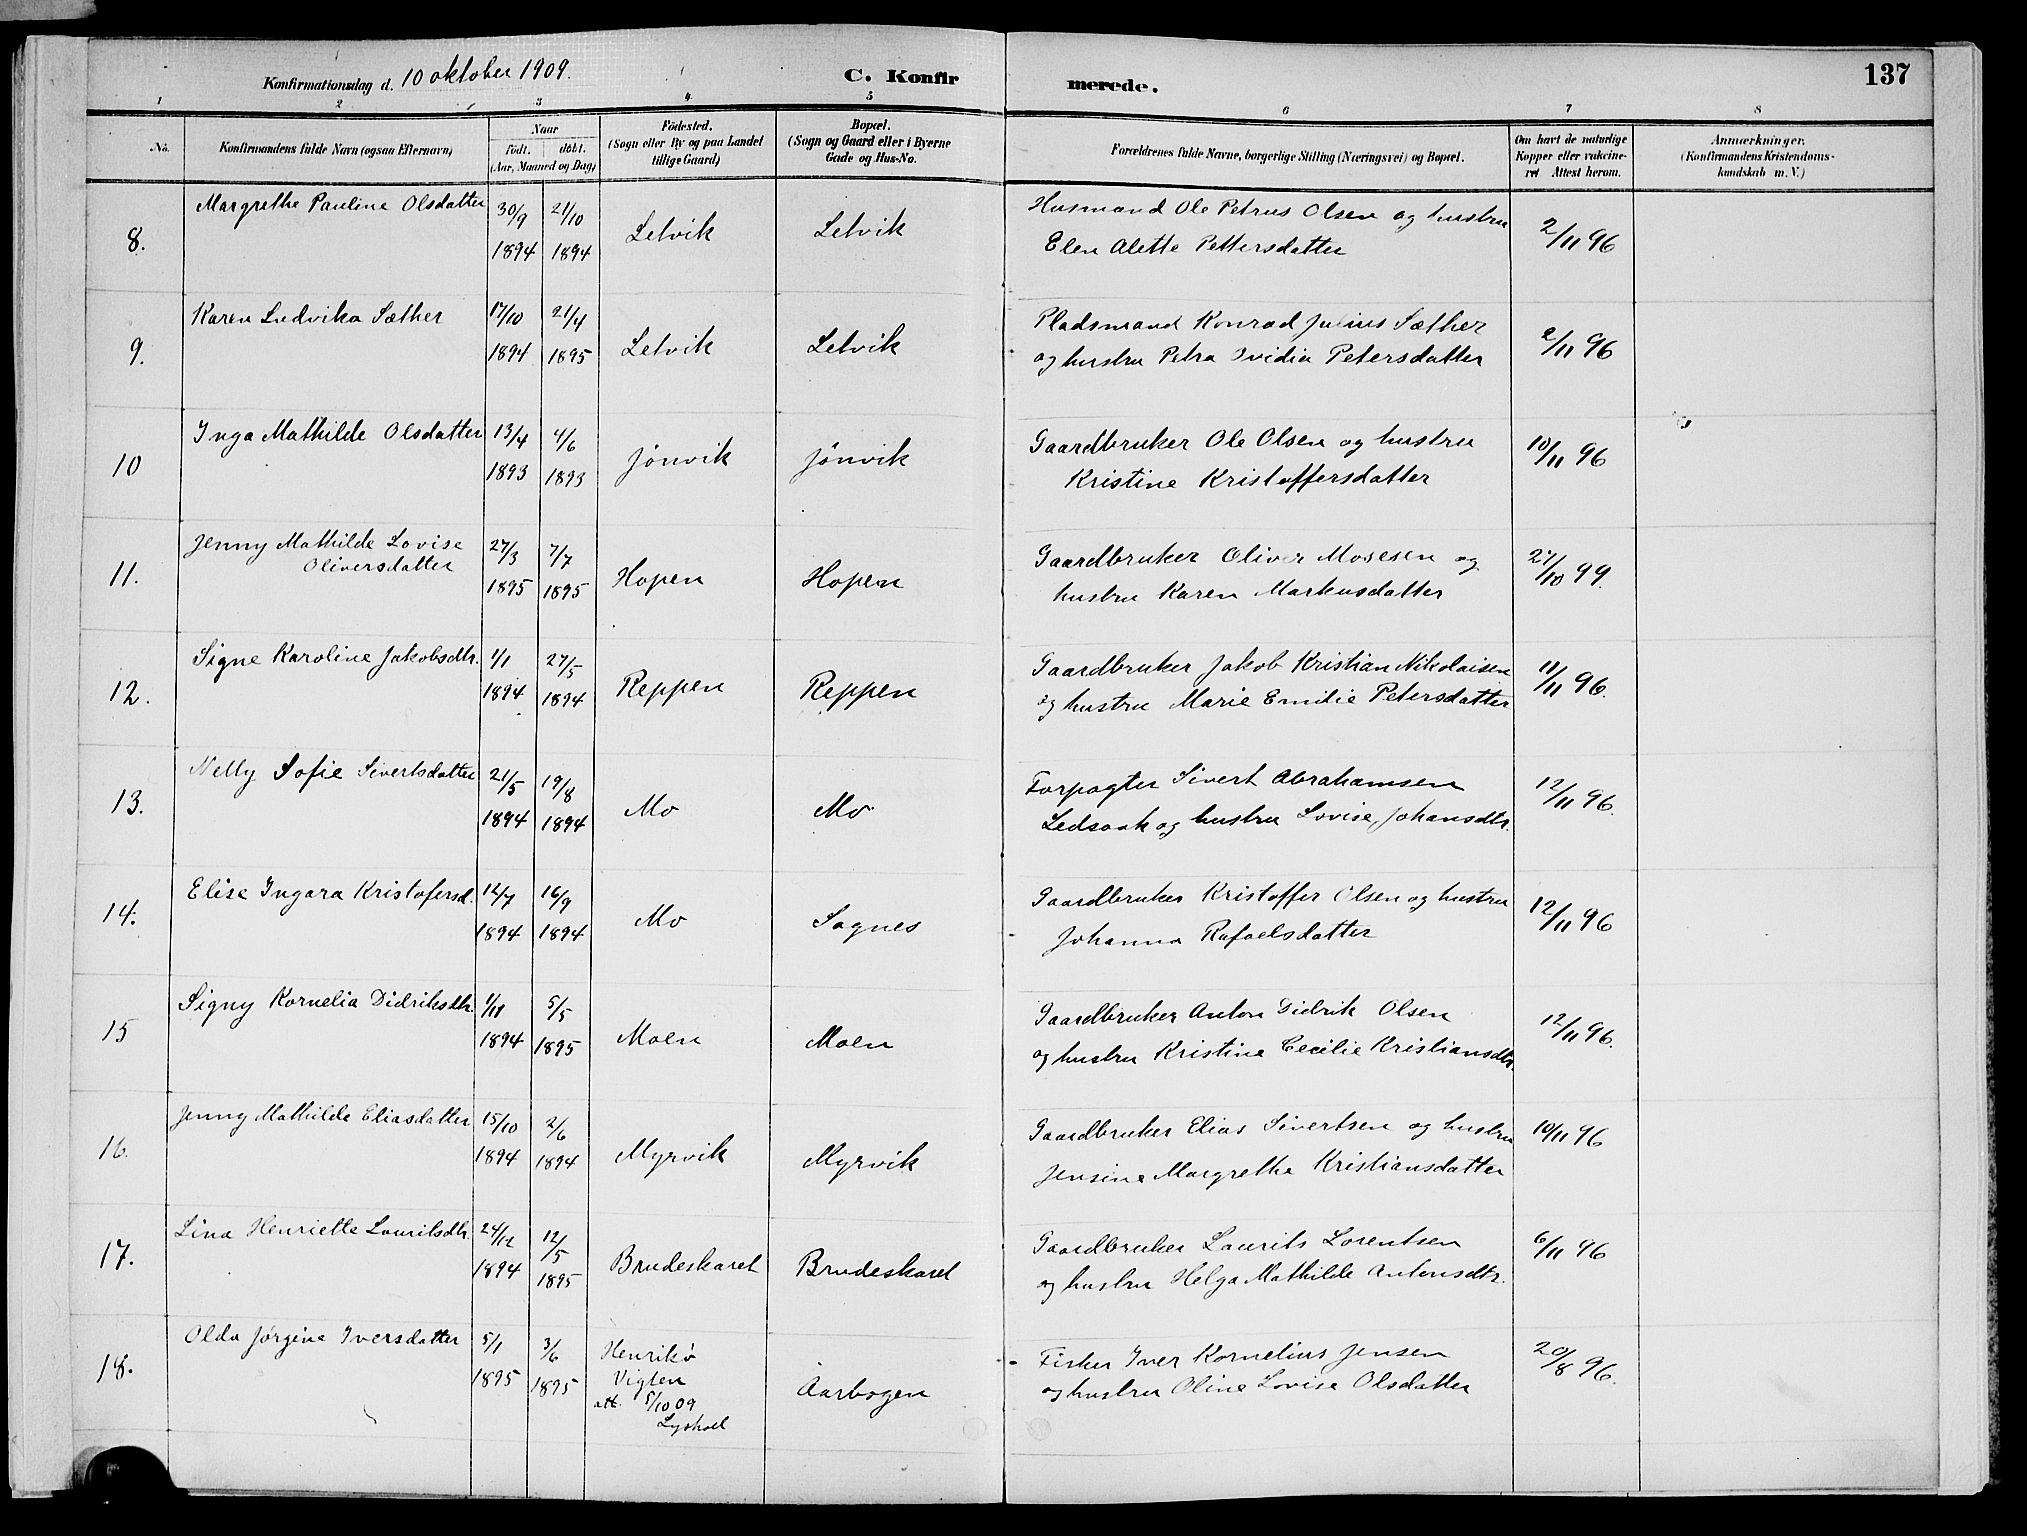 Konfirmationsdag d. 10 oktober 1909. C. Konfirmerede. 137
1 2 3 4 5 6 7 8
No. Konfirmandens fulde Navn (ogsaa Efternavn) Naar født. døbt. (Aar, Maaned og Dag) Fødested. (Sogn eller By og paa Landet tillige Gaard) Bopæl. (Sogn og Gaard eller i Byerne Gade og Hus-No. Forældrenes fulde Navne, borgerlige Stilling (Næringsvei) og Bopæl. Om havt de naturlige Kopper eller vakcineret Attest herom. Anmærkninger. (Konfirmandens Kristendomskundskab m. V.)
8. Margrethe Pauline Olsdatter 30/9 1894 21/10 1894 Letvik Letvik Husmand Ole Petrus Olsen og hustru
Elen Alette Pettersdatter 2/11 96
9. Karen Ludvika Sæther 17/10 1894 21/4 1895 Letvik Letvik Pladsmand Konrad Julius Sæther
og hustru Petra Ovidia Petersdatter 2/11 96
10 Inga Mathilde Olsdatter 13/4 1893 4/6 1893 Jönvik Jönvik Gaardbruker Ole Olsen og hustru
Kristine Kristoffersdatter 10/11 96
11. Jenny Mathilde Lovise
Oliversdatter 27/3 1895 7/7 1895 Hopen Hopen Gaardbruker Oliver Mosesen og
hustru Karen Markusdatter 27/10 99.
12. Signe Karoline Jakobsdtr. 1/1 1894 27/5 1894 Reppen Reppen Gaardbruker Jakob Kristian Nikolaisen
og hustru Marie Emilie Petersdatter 11/11 96.
13. Nelly Sofie Sivertsdatter 21/5 1894 19/8 1894 Mo Mo Forpagter Sivert Abrahamsen
Ledsaak og hustru Lovise Johansdtr. 12/11 96.
14. Elise Ingara Kristofersd. 12/7 1894 16/9 1894 Mo Sagnes Gaardbruker Kristoffer Olsen og hustru
Johanna Rafaelsdatter 12/11 96
15 Signy Kornelia Didriksdtr. 1/11 1894 5/5 1895 Moen Moen Gaardbruker Anton Didrik Olsen
og hustru Kristine Cecilie Kristiansdtr. 12/11 96.
16. Jenny Mathilde Eliasdatter 15/10 1894 2/6 1894 Myrvik Myrvik Gaardbruker Elias Sivertsen og hustru
Jensine Margrethe Kristiansdatter 10/11 96
17. Lina Henriette Lauritsdtr. 24/12 1894 12/5 1895 Brudeskaret Brudeskaret Gaardbruker Laurits Lorentsen
og hustru Helga Mathilde Antonsdtr. 6/11 96
18. Olda Jørgine Iversdatter 5/1 1895 3/6 1895 Henrikø
Vigten
att. 5/10 09
Aarbogen Fisker Iver Kornelius Jensen
og hustru Oline Lovise Olsdatter 20/8 96.